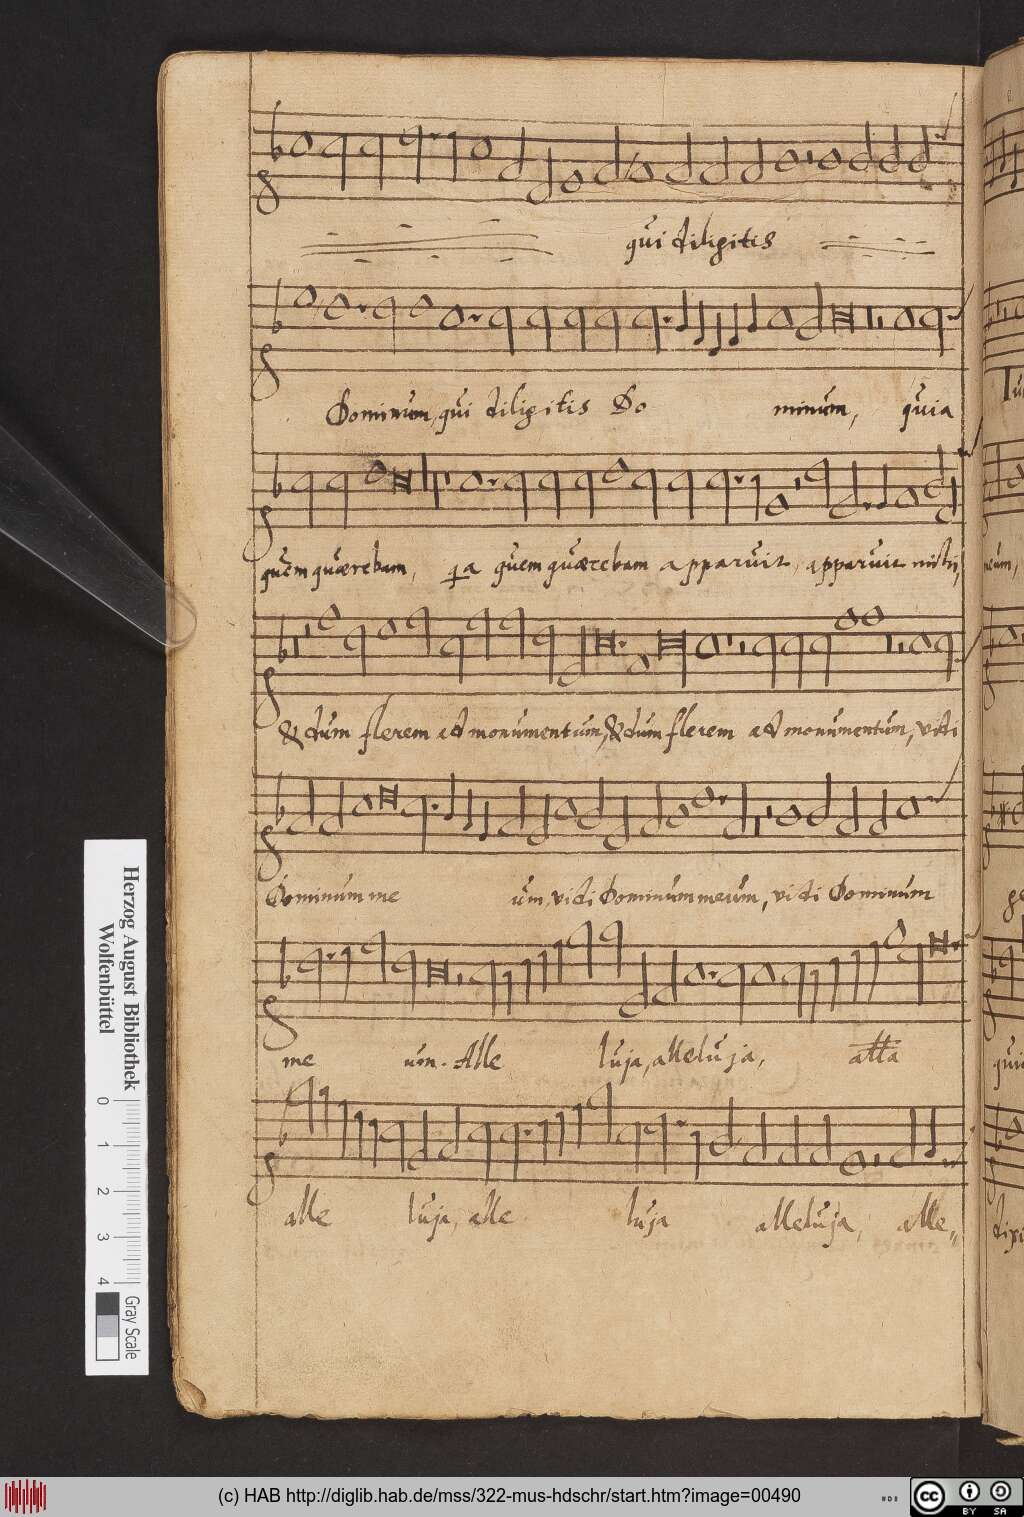 qui diligitis
Dominum, qui diligitis Do minum, quia
quem quærebam, qa quem quærebam apparuit, apparuit mihi,
& dum flerem ad monumentum, & dum flerem ad monumentum, vidi
Dominum me um, vidi Dominum meum, vidi Dominum
me um. Alle luja, alleluja, alla
alle luja, alle luja alleluja, alle„
Herzog August Bibliothek
Wolfenbüttel
0 1 2 3 4
Gray Scale
(c) HAB http://diglib.hab.de/mss/322-mus-hdschr/start.htm?image=00490
cc BY SA